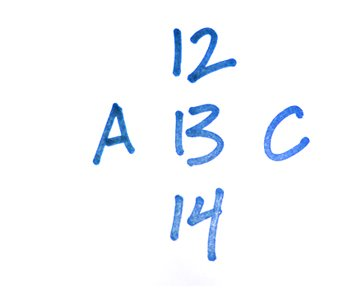 12
A 13 C
14